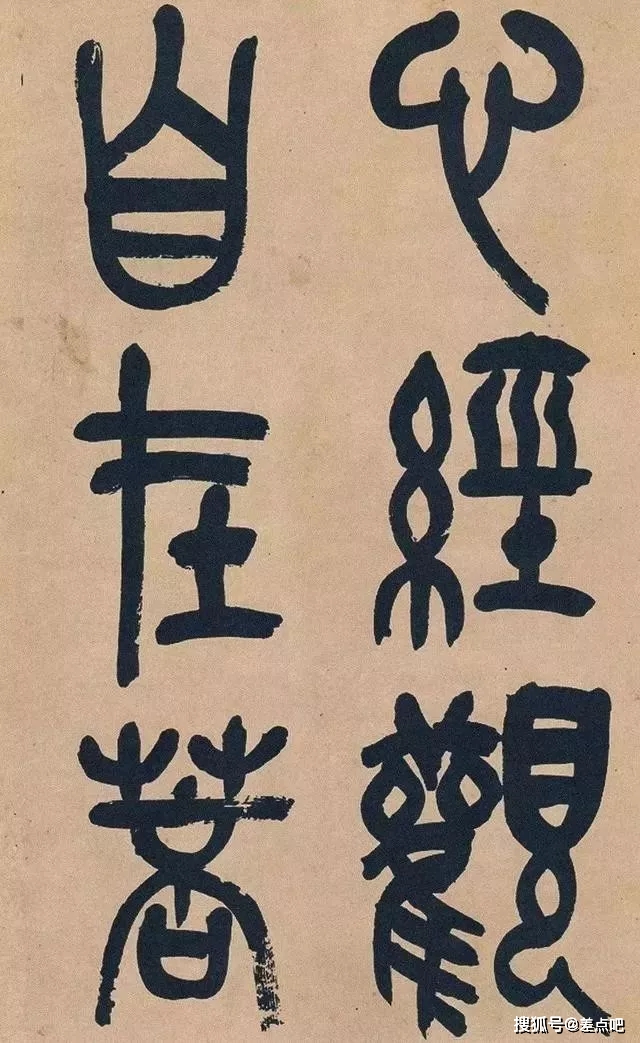 心經觀
自在菩
搜狐号@差点吧